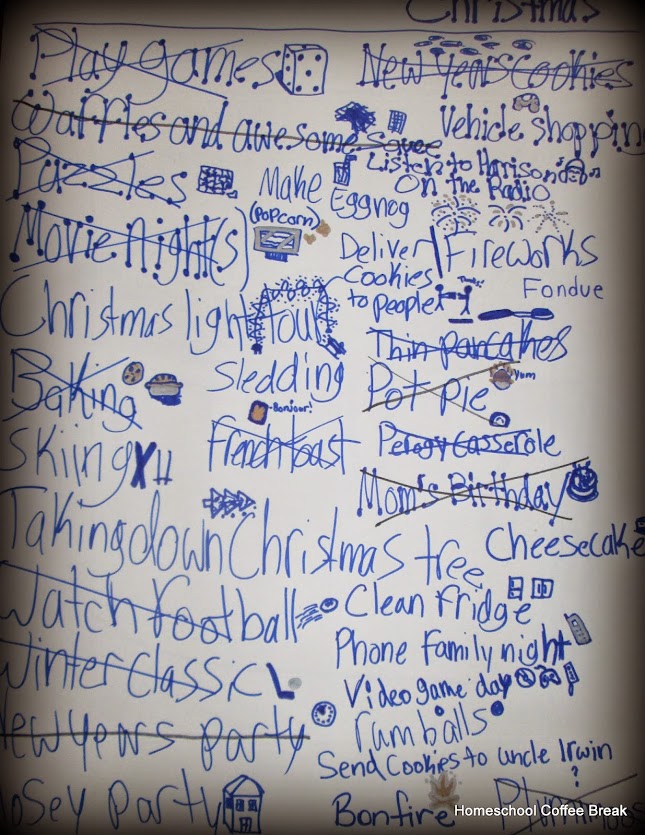 Christmas
Play games
New Years Cookies
Waffles and awesome sauce
Vehicle shopping
Puzzles
Make Eggnog
Listen to Harison
On the Radio
Movie Night(s)
(POPCORN)
Deliver
Cookies
to people
Thanks!
Fireworks
Fondue
Christmas light tour
Thin pancakes
Baking
Sledding
Pot Pie
Yum
Skiing
Bonjour!
French toast
Perogy Casserole
Mom's Birthday
Taking down Christmas tree
Cheesecake
Watch football
Clean Fridge
Winter Classic
Phone Family night
Video game day
New years party
rum balls
Send Cookies to uncle Irwin
?
Bonfire
Homeschool Coffee Break